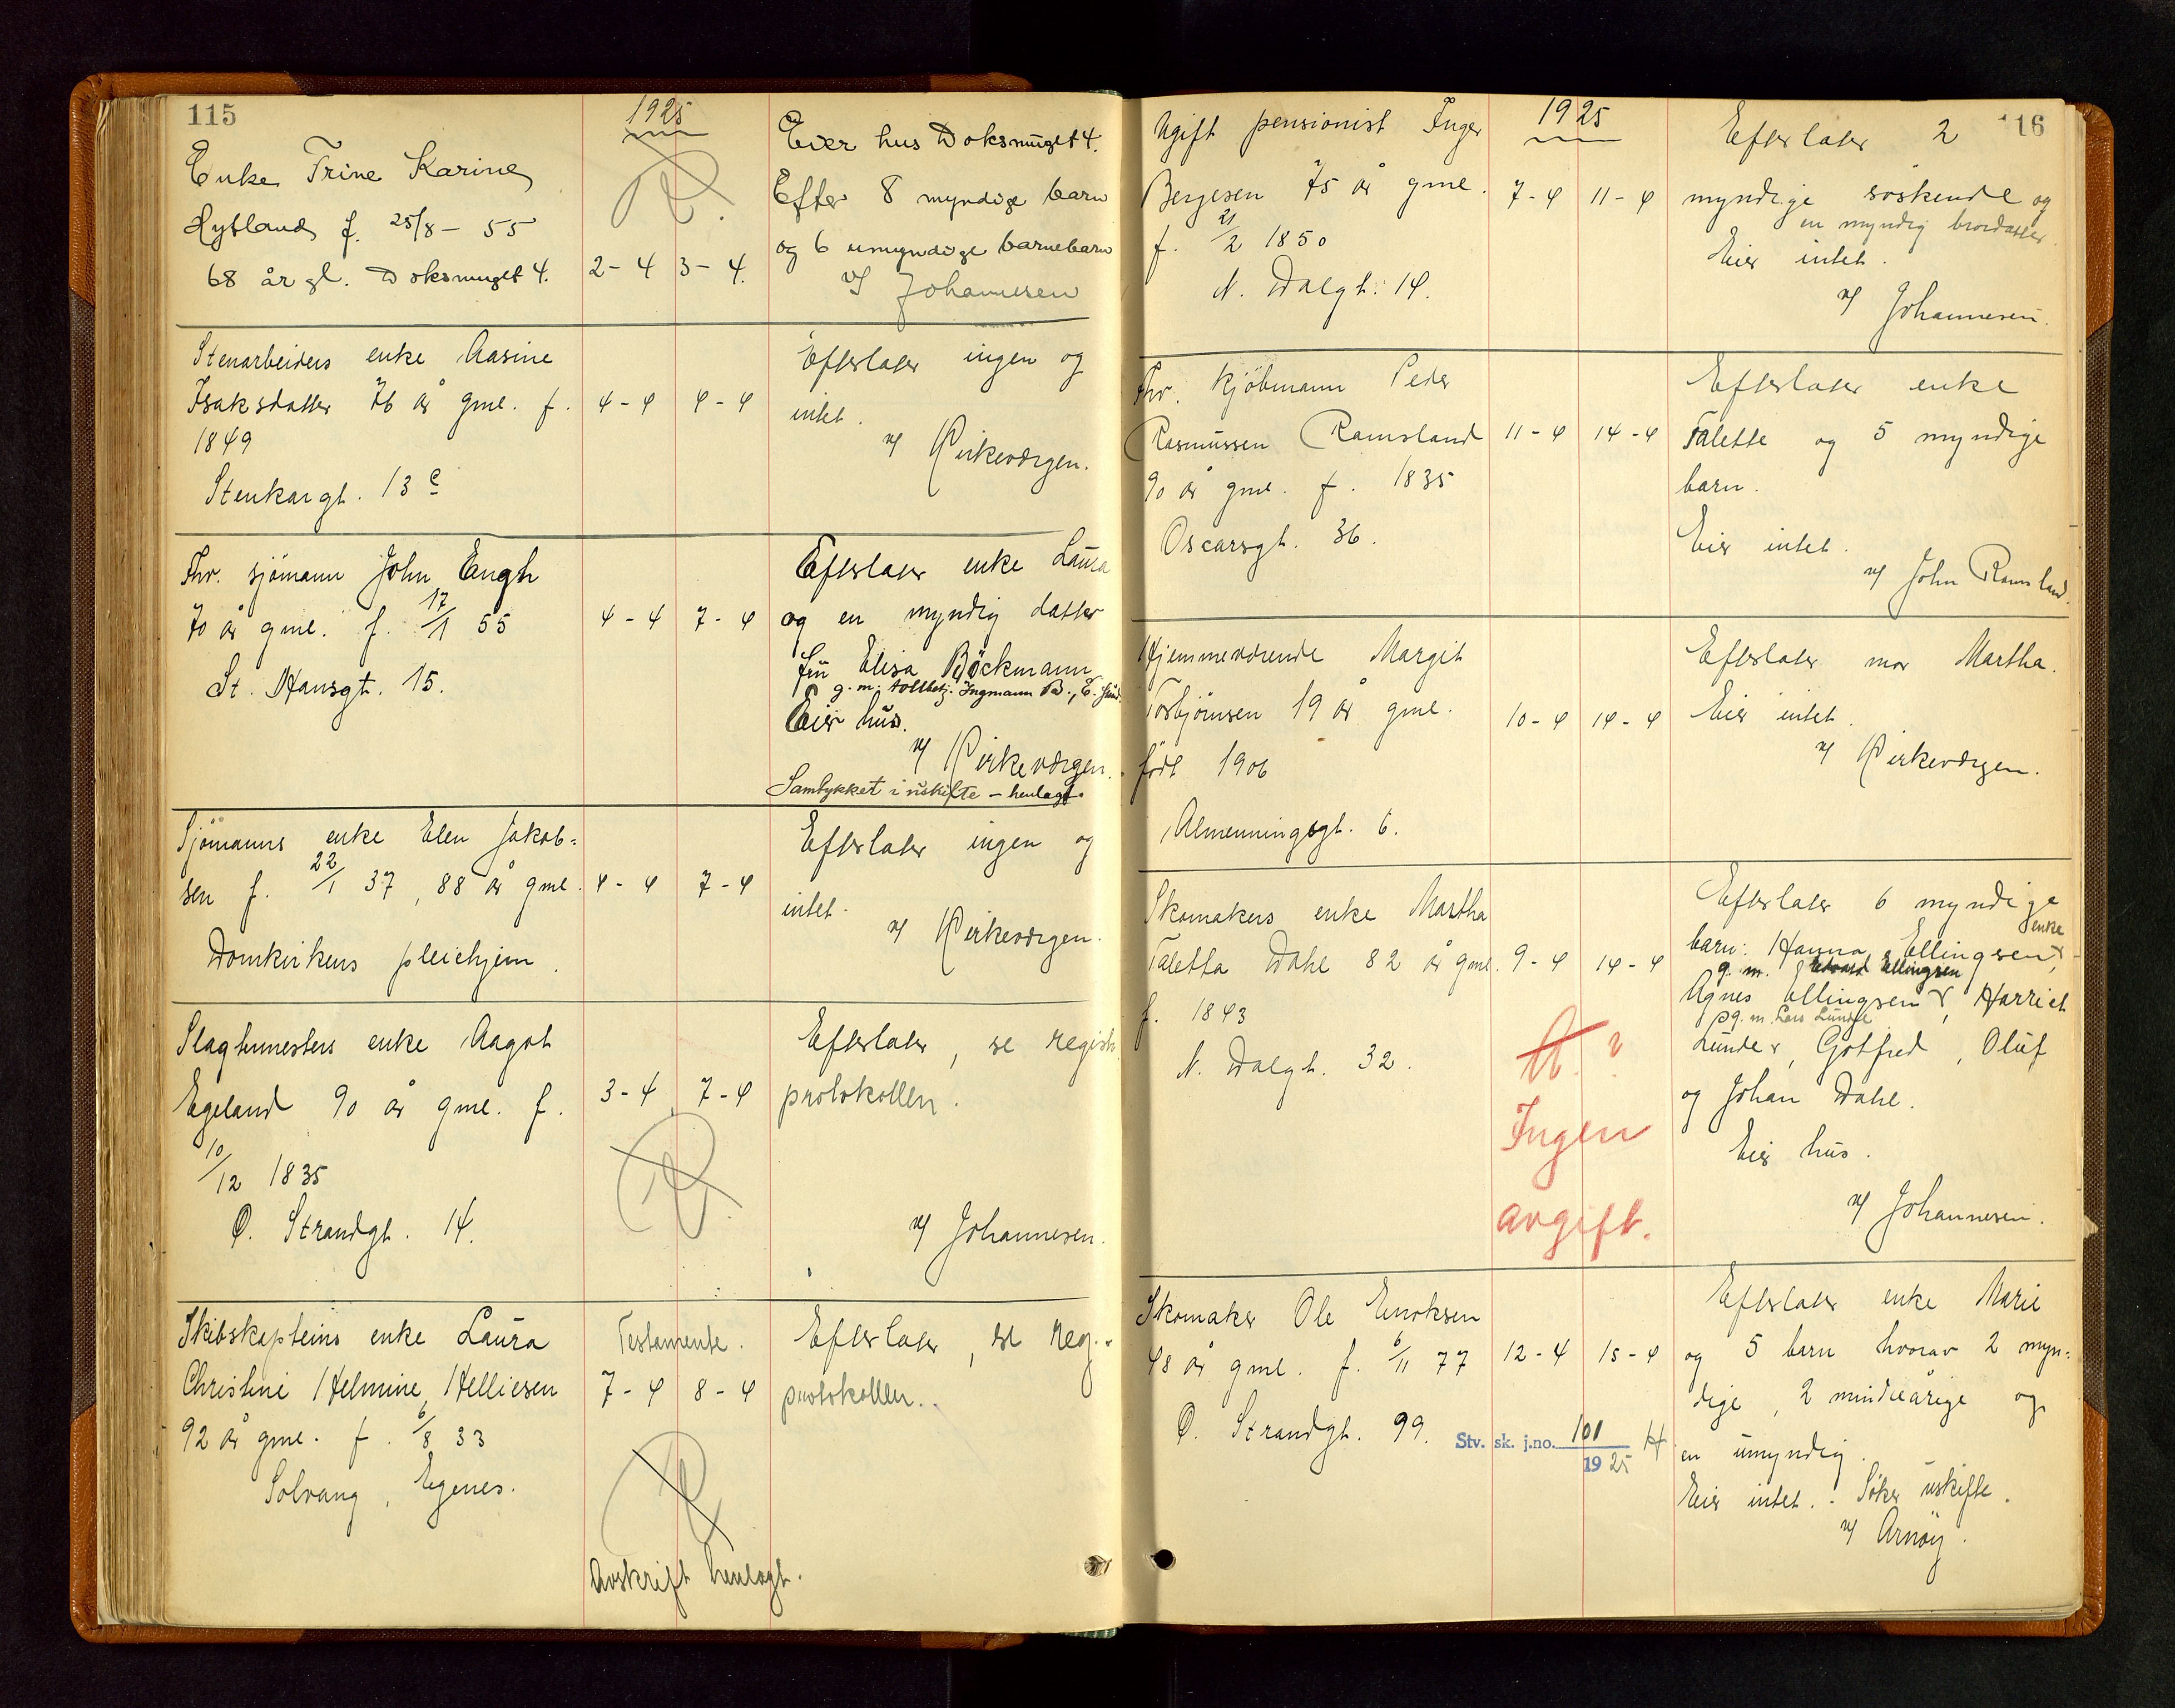 115
1925
Enke Trine Karine
Hytland f. 25/8 - 55
68 år gl. Doksmuget 4.
2 - 4 3 - 4.
Eier hus Doksmuget 4.
Efter 8 myndige barn
og 6 umyndige barnebarn
v/ Johannesen
Stenarbeiders enke Aasine
Isaksdatter 76 år gml. f.
1849
Stenkargt. 13 c
4 - 4 4 - 4
Efterlater ingen og
intet.
v/ Kirkeværgen.
Fhv. sjömann John Engh
70 år gml. f. 17/1 55
St. Hansgt. 15.
4 - 4 7 - 4
Efterlater enke Laura
og en myndig datter
fru Elisa Böckmann
g. m. tollbetj. Ingmann B.,
Eier hus.
v/ Kirkeværgen.
Samtykket i uskifte - henlagt.
Sjömanns enke Elen Jakob=
sen f. 22/1 37, 88 år gml.
Domkirkens pleiehjem.
4 - 4 7 - 4
Efterlater ingen og
intet.
v/ Kirkeværgen.
Slagtermesters enke Aagot
Egeland 90 år gml. f.
10/12 1835
Ø. Strandgt. 14.
3 - 4 7 - 4
Efterlater, se regist.
protokollen.
v/ Johannesen.
Skibskapteins enke Laura
Christine Helmine Helliesen
92 år gml. f. 6/8 33
Solvang, Egenes.
Testamente.
7 - 4 8 - 4
Avskrift henlagt.
Efterlater, se reg.
protokollen.
116
1925
Ugift pensionist Inger
Bergesen 75 år gml.
f. 21/2 1850
N. Dalgt. 14.
7 - 4 11 - 4
Efterlater 2
myndige söskende og
en myndig brordatter.
Eier intet.
v/ Johannesen.
Fhv. Kjöbmann Peder
Rasmussen Ramsland
90 år gml. f. 1835
Oscarsgt. 36.
11 - 4 14 - 4
Efterlater enke
Talette og 5 myndige
barn.
Eier intet.
v/ John Ramsland.
Hjemmeværende Margit
Torbjörnsen 19 år gml.
født 1906
Almenningsgt. 6.
10 - 4 14 - 4
Efterlater mor Martha.
Eier intet.
v/ Kirkeværgen.
Skomakers enke Martha
Taletta Dahl 82 år gml.
f. 1843
N. Dalgt. 32.
9 - 4 14 - 4
Ingen
avgift.
Efterlater 6 myndige
enke
barn: Hanna Ellingsen,
g. m. Edvard Ellingsen
Agnes Ellingsen, Harriet
g. m. Lars Lunde
Lunde, Gotfred, Oluf
og Johan Dahl.
Eier hus.
v/ Johannesen.
Skomaker Ole Enoksen
48 år gml. f. 6/11 77
Ø. Strandgt. 99.
12 - 4 15 - 4
Stv. sk. j.no. 101
1925
Efterlater enke Marie
og 5 barn hvorav 2 myn=
dige, 2 mindreårige og
en umyndig.
Eier intet. - Søker uskifte.
v/ Arnøy.